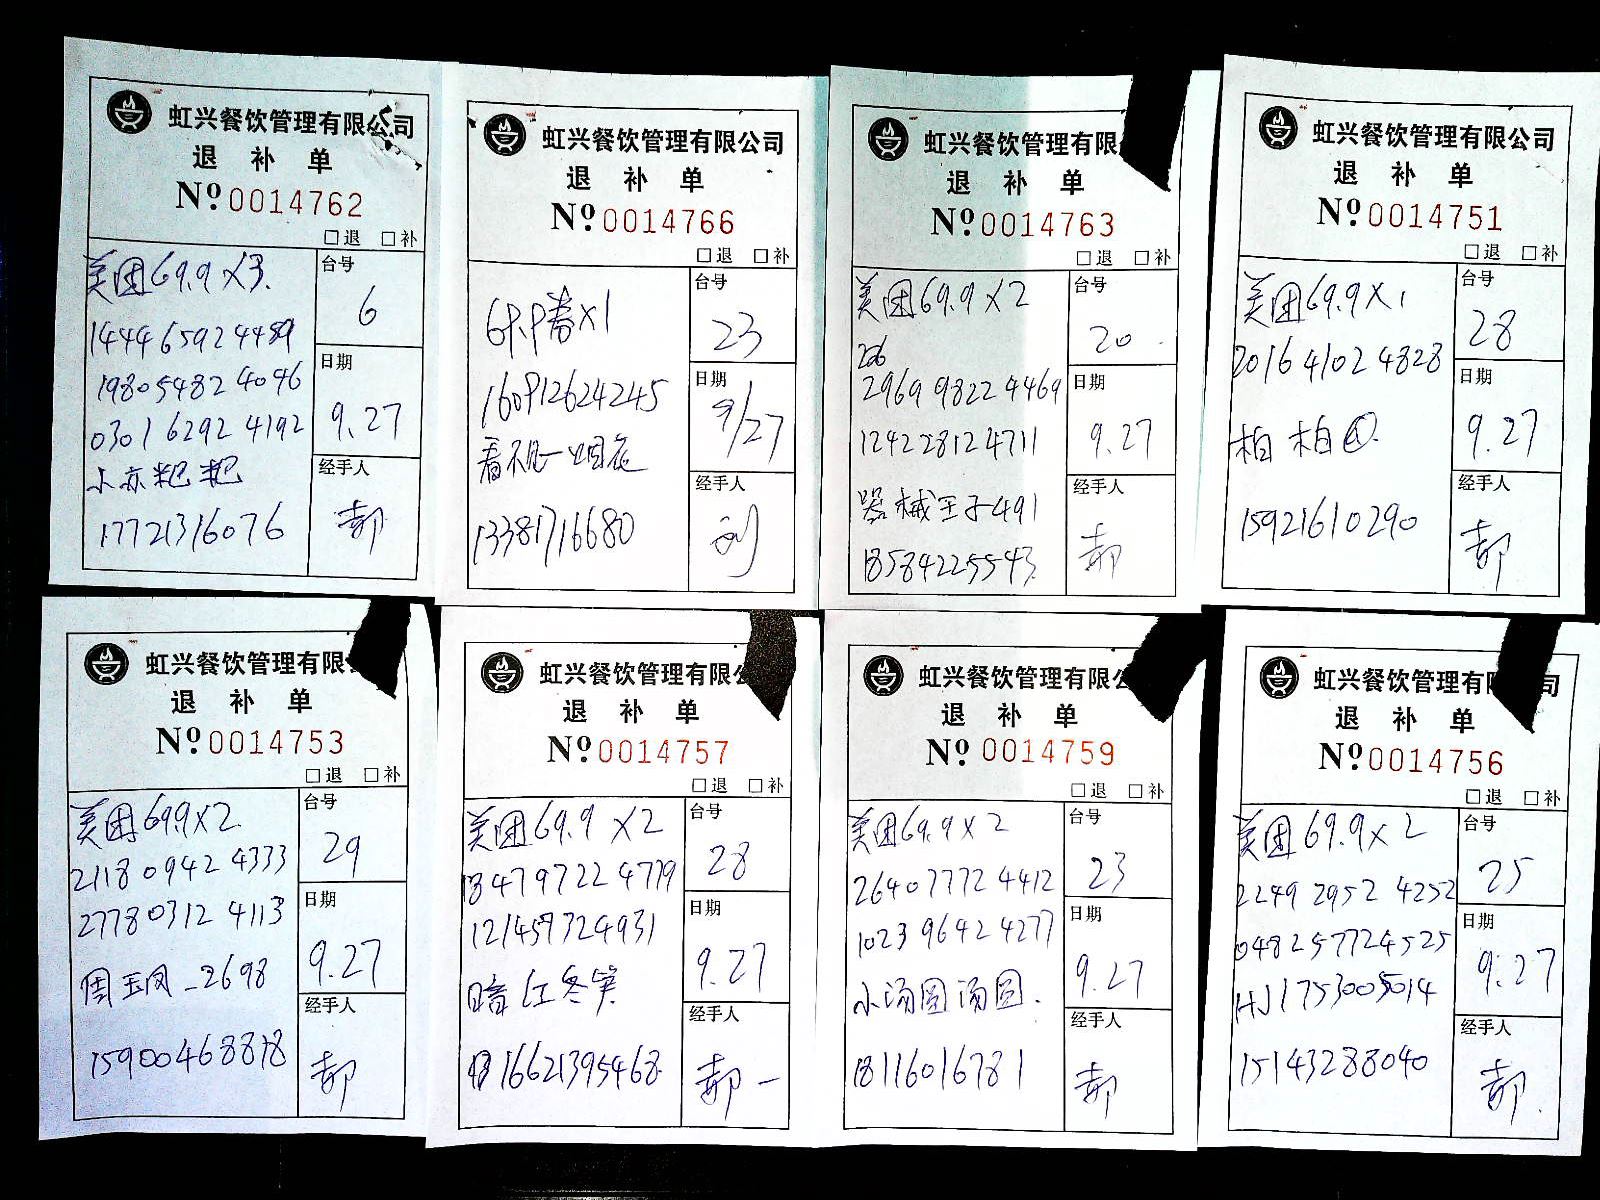 虹兴餐饮管理有限公司
退 补 单
Nº 0014762
□退 □补
美团69.9×3
1444 6592 4489
1980 5482 4096
0301 6292 4192
小亦粑粑
17721316076
台号
6
日期
9.27
经手人
郝
虹兴餐饮管理有限公司
退 补 单
Nº 0014766
□退 □补
69.9券×1
160912624245
看不见
13381716680
台号
23
日期
9/27
经手人
刘
虹兴餐饮管理有限
退 补 单
Nº 0014763
□退 □补
美团69.9×2
2969 9822 4469
1242 2812 4711
器械王子491
18584225543
台号
20
日期
9.27
经手人
郝
虹兴餐饮管理有限公司
退 补 单
Nº 0014751
□退 □补
美团69.9×1
2016 4102 4828
柏柏
15921610290
台号
28
日期
9.27
经手人
郝
虹兴餐饮管理有限
退 补 单
Nº 0014753
□退 □补
美团69.9×2
2118 0942 4333
2778 0312 4113
周玉凤_2698
15900468818
台号
29
日期
9.27
经手人
郝
虹兴餐饮管理有限公
退 补 单
Nº 0014757
□退 □补
美团69.9×2
1847 9722 4779
1214 5732 4931
暗红冬笋
16621395468
台号
28
日期
9.27
经手人
郝
虹兴餐饮管理有限公
退 补 单
Nº 0014759
□退 □补
美团69.9×2
2640 7772 4412
1023 9642 4277
小汤圆汤圆.
18116016781
台号
23
日期
9.27
经手人
郝
虹兴餐饮管理有限 司
退 补 单
Nº 0014756
□退 □补
美团69.9×2
2249 2952 4252
0482 5772 4525
HJ1753005014
15143288040
台号
25
日期
9.27
经手人
郝